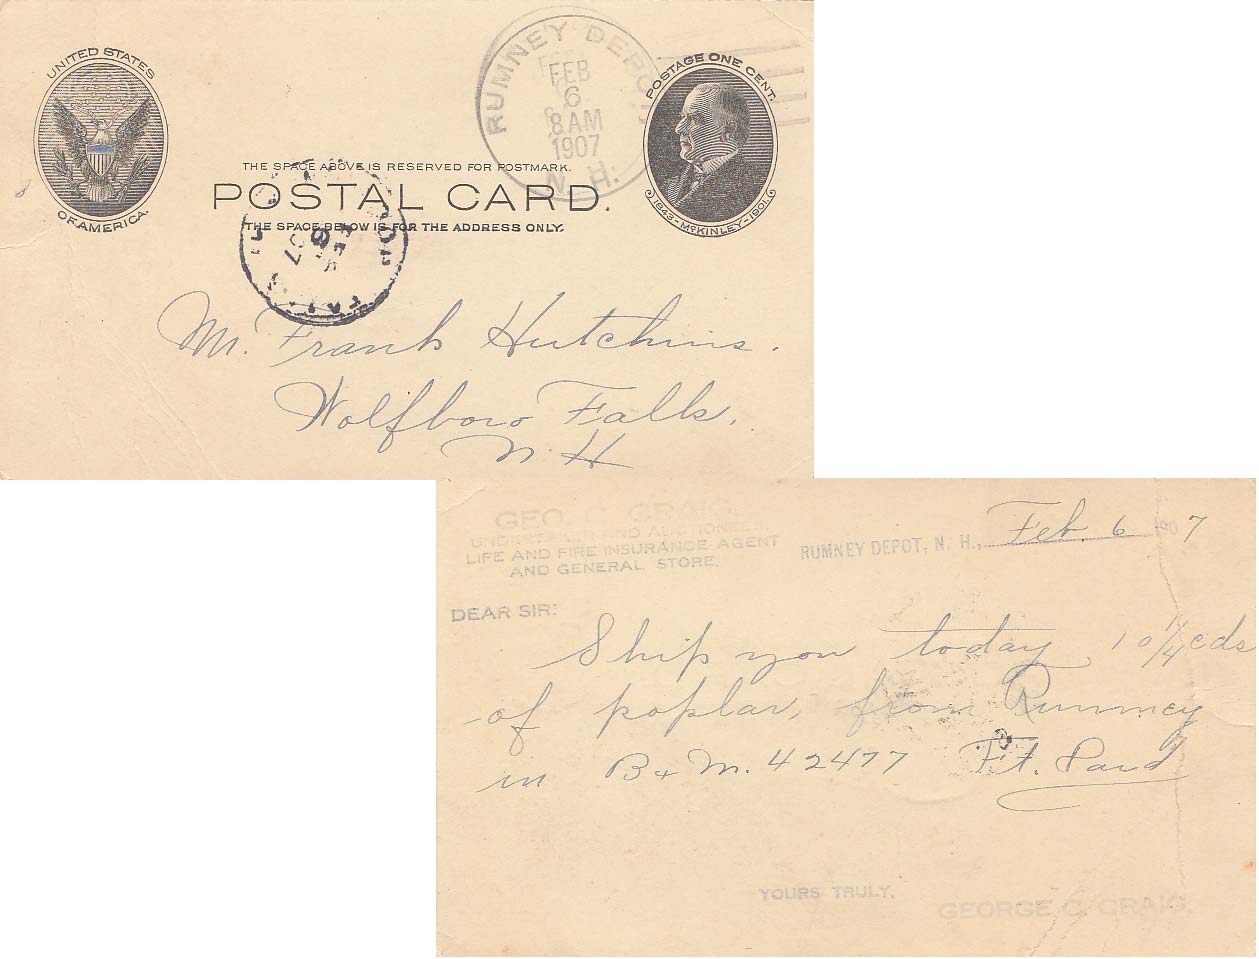 UNITED STATES
OF AMERICA.
RUMNEY DEPOT
FEB
6
8 AM
1907
N. H.
POSTAGE ONE CENT.
1843-McKINLEY-1901.
THE SPACE ABOVE IS RESERVED FOR POSTMARK.
POSTAL CARD.
THE SPACE BELOW IS FOR THE ADDRESS ONLY.
FEB
6
07
Mr. Frank Hutchins.
Wolfboro Falls.
N. H
GEO. C. CRAIG,
UNDERTAKER AND AUCTIONEER
LIFE AND FIRE INSURANCE AGENT
AND GENERAL STORE.
RUMNEY DEPOT, N. H., Feb. 6 1907
DEAR SIR:
Ship you today 10 1/4 cds
of poplar, from Rumney
in B & M. 42477 Ft. Paid
YOURS TRULY,
GEORGE C. CRAIG.